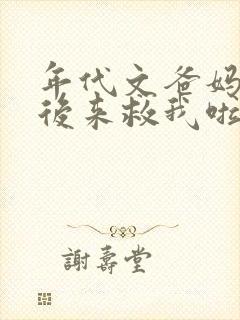 年代文爸妈
後来救我啦
謝壽堂